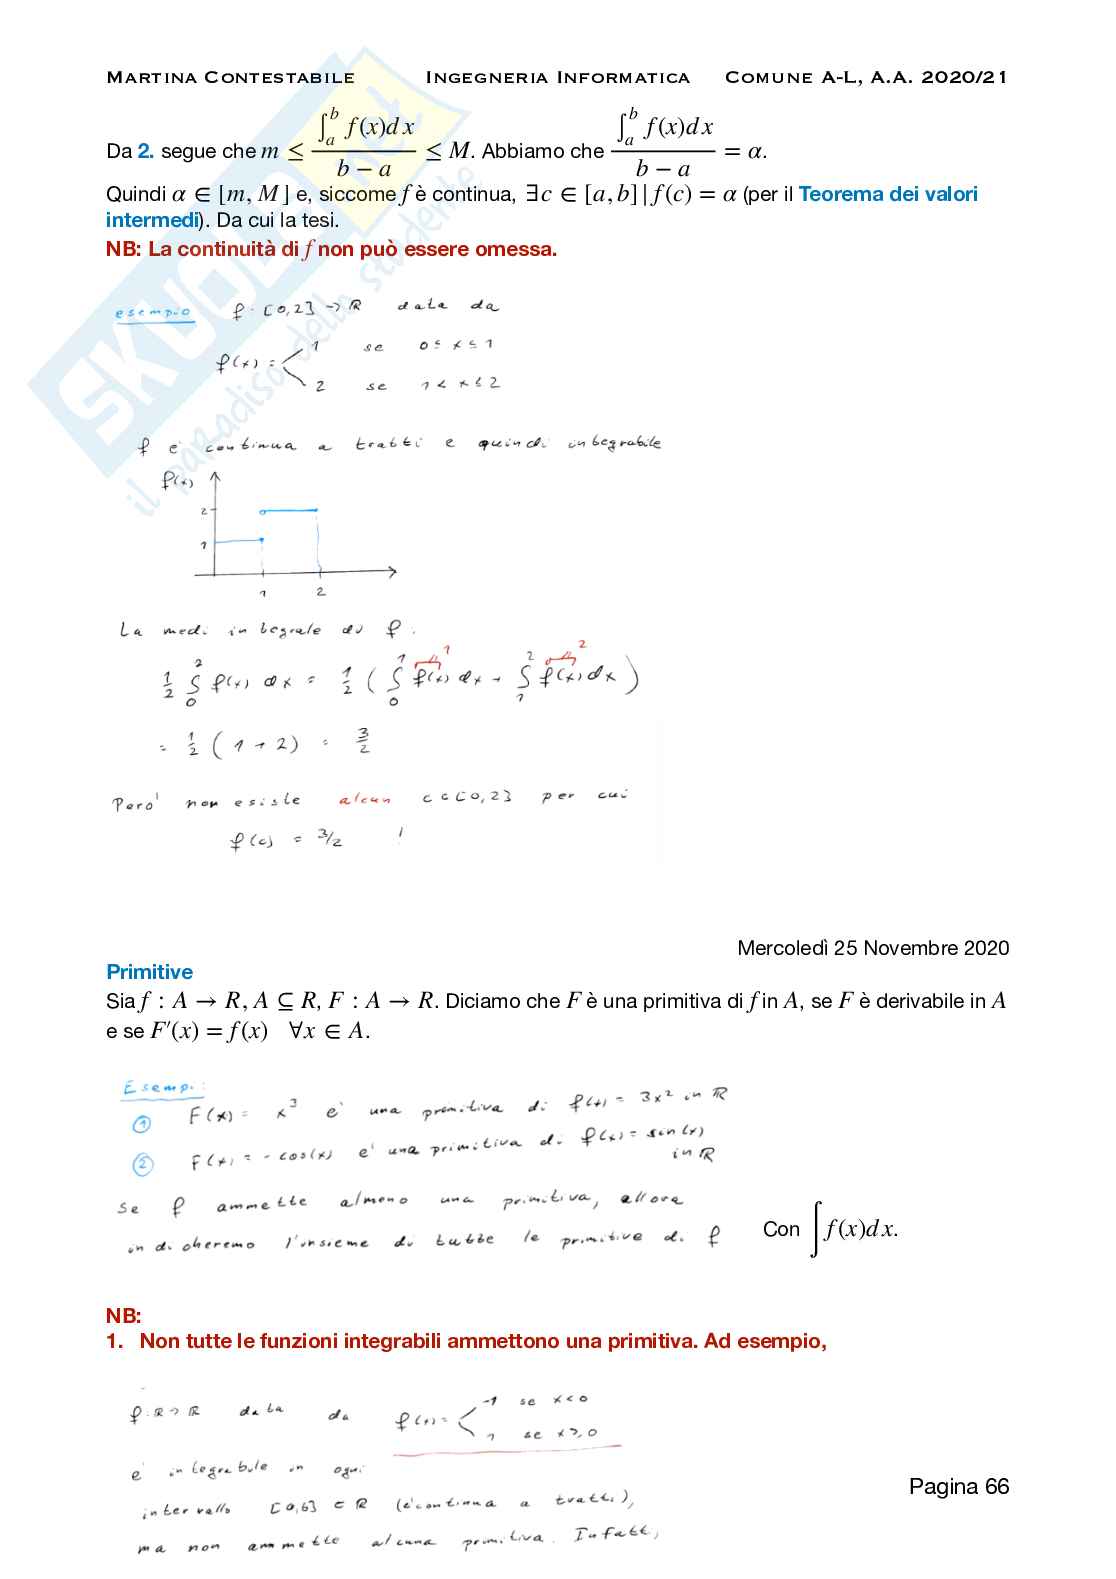 MARTINA CONTESTABILE INGEGNERIA INFORMATICA COMUNE A-L, A.A. 2020/21
Da 2. segue che m ≤ ∫_a^b f(x)dx / (b − a) ≤ M. Abbiamo che ∫_a^b f(x)dx / (b − a) = α.
Quindi α ∈ [m, M] e, siccome f è continua, ∃c ∈ [a, b] | f(c) = α (per il Teorema dei valori
intermedi). Da cui la tesi.
NB: La continuità di f non può essere omessa.
SKUOLA.net
il paradiso dello studente
esempio f: [0,2] → R data da
f(x) = 1 se 0 ≤ x ≤ 1
2 se 1 < x ≤ 2
f e' continua a tratti e quindi integrabile
f(x)
2
1
1 2
La medi integrale di f:
1/2 ∫_0^2 f(x) dx = 1/2 ( ∫_0^1 f(x) dx + ∫_1^2 f(x) dx )
1 2
= 1/2 ( 1 + 2 ) = 3/2
Pero' non esiste alcun c ∈ [0,2] per cui
f(c) = 3/2 !
Mercoledì 25 Novembre 2020
Primitive
Sia f : A → R, A ⊆ R, F : A → R. Diciamo che F è una primitiva di f in A, se F è derivabile in A
e se F′(x) = f(x) ∀x ∈ A.
Esempi:
① F(x) = x³ e' una primitiva di f(x) = 3x² in R
② F(x) = - cos(x) e' una primitiva di f(x) = sin(x)
in R
Se f ammette almeno una primitiva, allora
indicheremo l'insieme di tutte le primitive di f Con ∫ f(x)dx.
NB:
1. Non tutte le funzioni integrabili ammettono una primitiva. Ad esempio,
f: R → R data da f(x) = -1 se x < 0
1 se x ≥ 0
e' integrabile in ogni
intervallo [a,b] ⊂ R (e' continua a tratti),
ma non ammette alcuna primitiva. Infatti,
Pagina 66